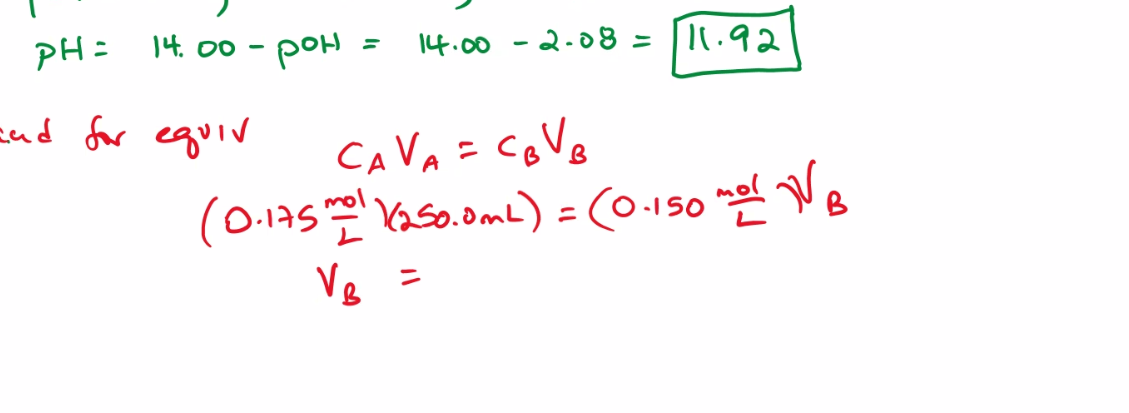 pH = 14.00 - pOH = 14.00 - 2.08 = 11.92
for equiv
C_A V_A = C_B V_B
(0.175 mol/L)(250.0mL) = (0.150 mol/L)V_B
V_B =